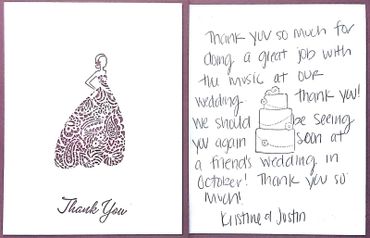 Thank You
Thank you so much for
doing a great job with
the music at our
wedding thank you!
We should be seeing
you again soon at
a friend's wedding in
October! Thank you so
much!
Kristine & Justin